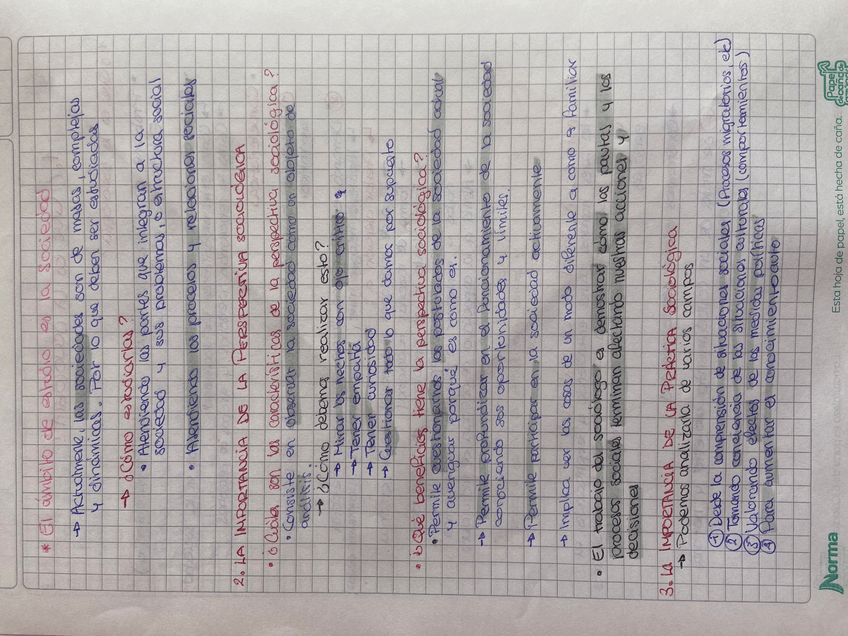 * El ámbito de estudio es la sociedad
→ Actualmente, las sociedades son de masas, complejas
y dinámicas. Por lo que deben ser estudiadas
→ ¿Cómo estudiarlas?
• Atendiendo las partes que integran a la
sociedad y sus problemas, o estructura social
• Atendiendo los procesos y relaciones sociales
2. LA IMPORTANCIA DE LA PERSPECTIVA SOCIOLÓGICA
• ¿Cuáles son las características de la perspectiva sociológica?
• Consiste en observar la sociedad como un objeto de
análisis.
→ ¿Cómo debemos realizar esto?
→ Mirar los hechos con ojo crítico
→ Tener empatía
→ Tener curiosidad
→ Cuestionar todo lo que damos por supuesto
• ¿Qué beneficios tiene la perspectiva sociológica?
• Permite cuestionarnos los postulados de la sociedad actual
y averiguar porqué es como es.
→ Permite profundizar en el funcionamiento de la sociedad
conociendo sus oportunidades y límites.
→ Permite participar en la sociedad activamente
→ Implica ver las cosas de un modo diferente a como a familiar
• El trabajo del sociólogo es demostrar cómo las pautas y los
procesos sociales terminan afectando nuestras acciones y
decisiones
3. LA IMPORTANCIA DE LA PRÁCTICA SOCIOLÓGICA
→ Podemos analizarla de varios campos
① Desde la comprensión de situaciones sociales (Procesos migratorios, etc)
② Tomando conciencia de las situaciones culturales (comportamientos)
③ Valorando efectos de las medidas políticas
④ Para aumentar el conocimiento
Norma
Esta hoja de papel, está hecha de caña.
Papel